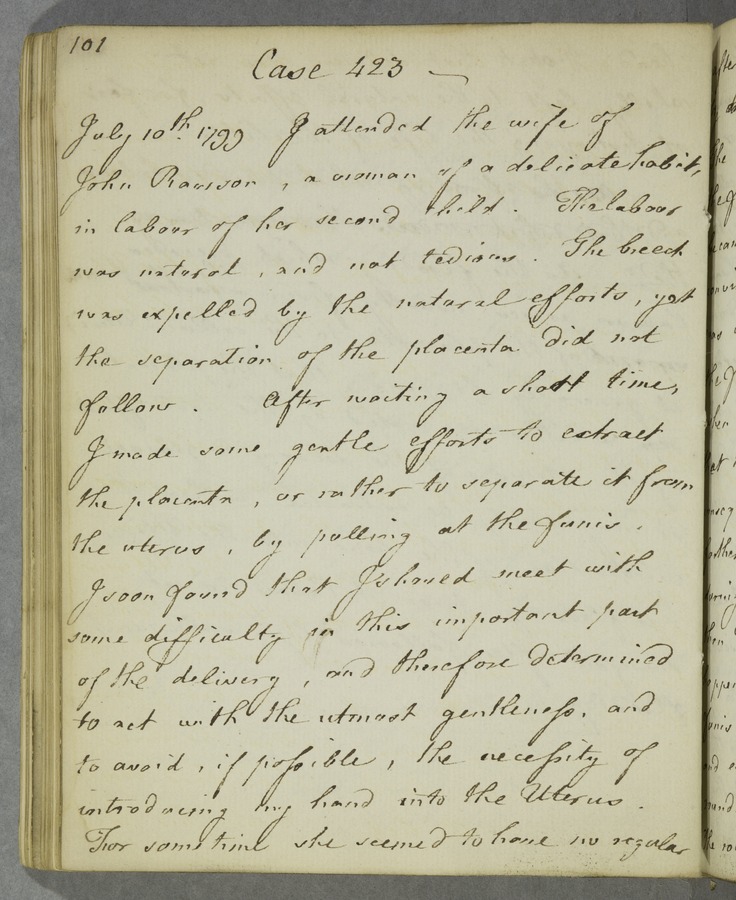 101
Case 423 —
July 10th. 1799 I attended the wife of
John Rawson, a woman of a delicate habit,
in labour of her second child. The labour
was natural, and not tedious. The breech
was expelled by the natural efforts, yet
the separation of the placenta did not
follow. After waiting a short time,
I made some gentle efforts to extract
the placenta, or rather to separate it from
the uterus, by pulling at the funis.
I soon found that I should meet with
some difficulty in this important part
of the delivery, and therefore determined
to act with the utmost gentleness, and
to avoid, if possible, the necessity of
introducing my hand into the Uterus.
For some time she seemed to have no regular